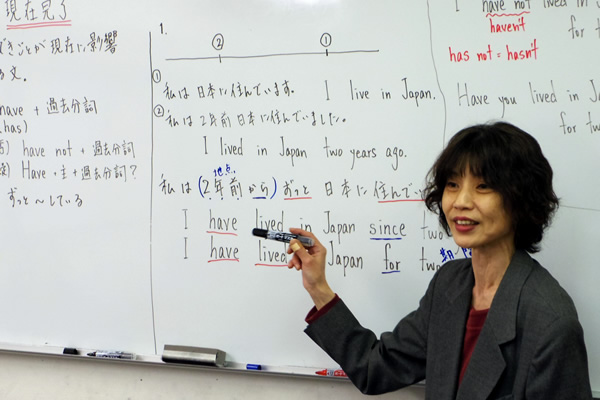 現在完了
できごとが現在に影響
文。
have + 過去分詞
has)
have not + 過去分詞
Have・主 + 過去分詞?
ずっと〜している
1.
② ①
① 私は日本に住んでいます。 I live in Japan.
② 私は2年前日本に住んでいました。
I lived in Japan two years ago.
地点
私は(2年前から)ずっと日本に住んでい
I have lived in Japan since two
I have lived Japan for two
期
I have not lived in J
haven't for t
has not = hasn't
Have you lived in Ja
for tw